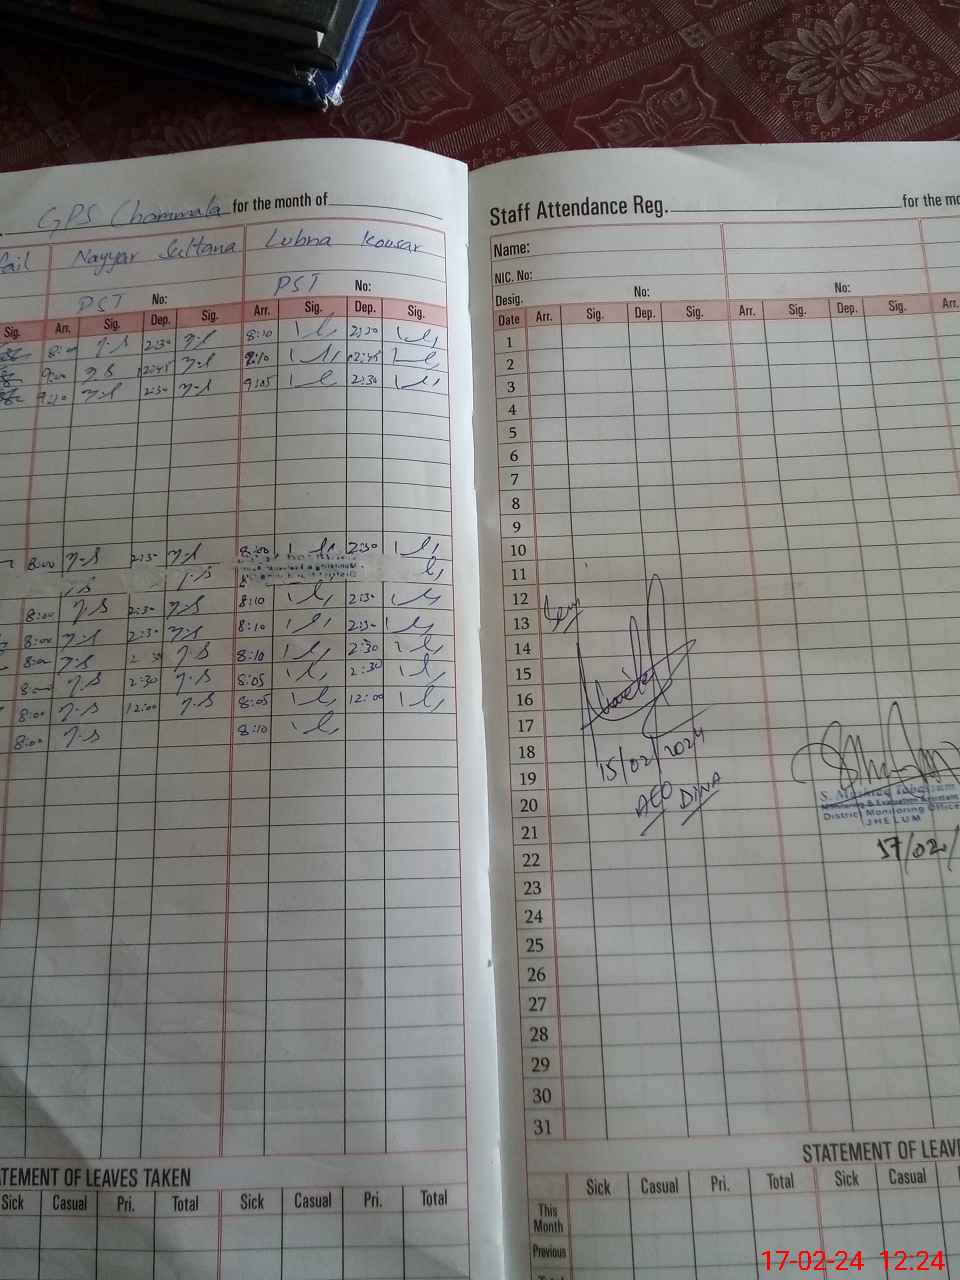 GPS Chammala for the month of
Nayyar Sultana Lubna Kousar
PST No: PST No:
Sig. Arr. Sig. Dep. Sig. Arr. Sig. Dep. Sig.
8:00 2:30 8:10 2:20
9:00 12:45 12:45
9:10 2:30 9:05 2:30
8:00 2:30 8:00 2:30
8:00 2:30 8:10 2:30
8:00 2:30 8:10 2:30
8:00 2:30 8:10 2:30
8:00 2:30 8:05 2:30
8:00 12:00 8:05 12:00
8:00 8:10
STATEMENT OF LEAVES TAKEN
Sick Casual Pri. Total Sick Casual Pri. Total
Staff Attendance Reg. for the
Name:
NIC. No:
Desig. No: No:
Date Arr. Sig. Dep. Sig. Arr. Sig. Dep. Sig. Arr.
1
2
3
4
5
6
7
8
9
10
11
12
13
14
15
16
17
18
19
20
21
22
23
24
25
26
27
28
29
30
31
15/02/2024
AEO DINA
District Monitoring Office
JHELUM
17/02/
STATEMENT OF
Sick Casual Pri. Total Sick Casual
This
Month
Previous
17-02-24 12:24